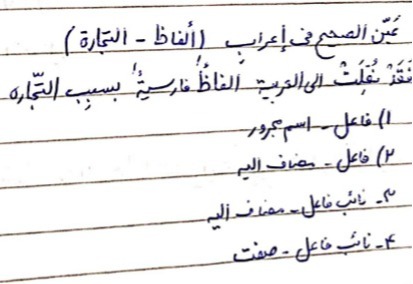 عَيّن الصحيح فى إعرابِ (ألفاظ - التجارة)
فَقَدْ نُقِلَتْ الى العربية ألفاظُ فارسيةُ بسببِ التّجاره
۱) فاعل - اسم مجرور
۲) فاعل - مضاف اليه
۳- نائب فاعل - مضاف اليه
۴- نائب فاعل - صفت